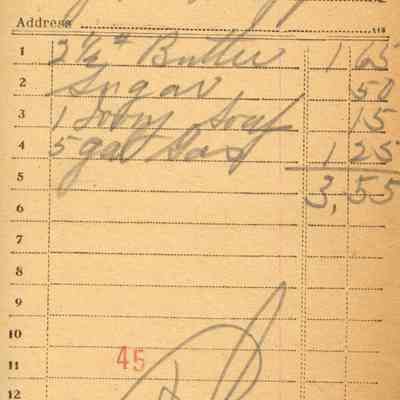 Address
1 2½ # Butter 1 65
2 Sugar 50
3 1 Ivory Soap 15
4 5 gal Gas 1 25
5 3,55
6
7
8
9
10
11 45
12